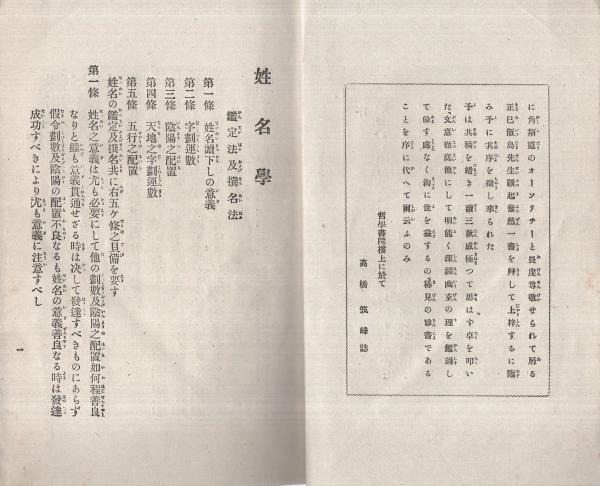 に角斯道のオーソリチーと畏虔尊敬せられて居る
正巳飯島先生蹶起奮然一書を綷して上梓するに臨
み予に其序を徴し来られた
予は其稿を繙き一讀三歎感極つて思はす卓を叩い
た文意徹底簡にして明能く深淵幽玄の理を鑑識し
て餘す處なく洵に世を益するの稀見の珍書である
ことを序に代へて爾云ふのみ
哲學書院樓上に於て
高橋筑峰誌
姓名學
鑑定法及撰名法
第一條 姓名讀下しの意義
第二條 字劃運數
第三條 陰陽之配置
第四條 天地之字劃運數
第五條 五行之配置
姓名の鑑定及撰名共に右五ケ條之具備を要す
第一條 姓名之意義は尤も必要にして他の劃數及陰陽之配置如何程善良
なりと雖も意義貫通せざる時は决して發達すべきものにあらず
假令劃數及陰陽の配置不良なるも姓名の意義善良なる時は發達
成功すべきにより尤も意義に注意すべし